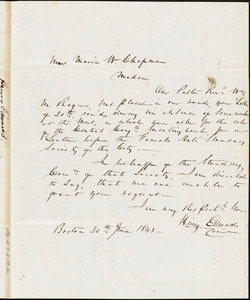 Mrs Maria W Chapman
Madam
Our Pastor Revd Wm
M Rogers, has placed in our hands, your
of 20th
at the West, in which you ask for the use
of the Central Congl meeting house, for a
before the Female Anti Slavery
Society of this City
In behalf of the Standing
Come of that Society, I am directed
to say, that we are unable to
grant your request
I am very Respectly Yours
Henry Edwards
Chairman
Boston 30th June 1843
Henry Edwards.